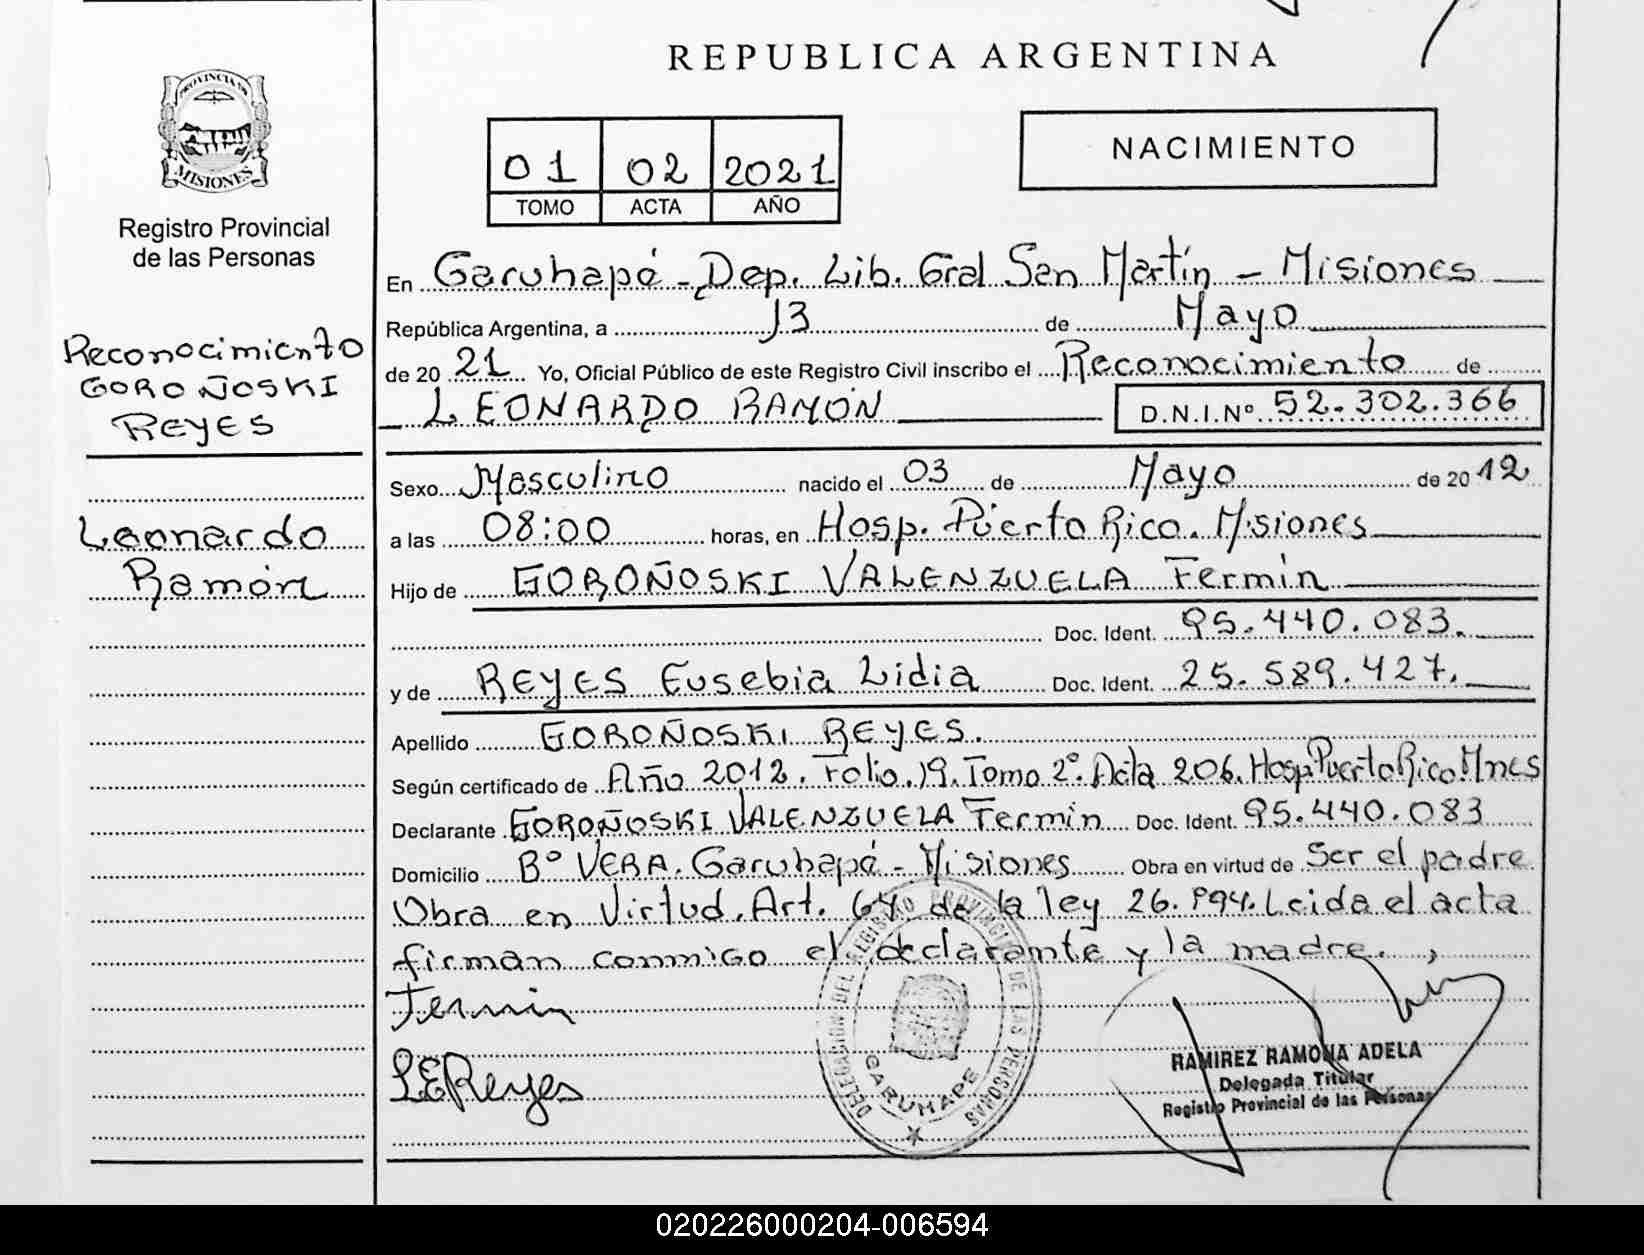 REPUBLICA ARGENTINA
PROVINCIA DE
MISIONES
Registro Provincial
de las Personas
01 02 2021
TOMO ACTA AÑO
NACIMIENTO
Reconocimiento
GOROÑOSKI
REYES
Leonardo
Ramón
En Garuhapé - Dep. Lib. Gral San Martín - Misiones
República Argentina, a 13 de Mayo
de 20 21 Yo, Oficial Público de este Registro Civil inscribo el Reconocimiento de
LEONARDO RAMÓN D.N.I.Nº 52.302.366
Sexo Masculino nacido el 03 de Mayo de 20 12
a las 08:00 horas, en Hosp. Puerto Rico. Misiones
Hijo de GOROÑOSKI VALENZUELA Fermin
Doc. Ident. 95.440.083.
y de REYES Eusebia Lidia Doc. Ident. 25.589.427.
Apellido GOROÑOSKI REYES.
Según certificado de Año 2012. Folio. 19. Tomo 2º. Acta 206. Hosp Puerto Rico. Mnes
Declarante GOROÑOSKI VALENZUELA Fermin Doc. Ident. 95.440.083
Domicilio Bº VERA. Garuhapé - Misiones Obra en virtud de Ser el padre
Obra en Virtud. Art. 64 de la ley 26.994. Leida el acta
firman conmigo el declarante y la madre.
Fermin
L E Reyes
DELEGACION DEL REGISTRO PROVINCIAL DE LAS PERSONAS
GARUHAPE
RAMIREZ RAMONA ADELA
Delegada Titular
Registro Provincial de las Personas
020226000204-006594